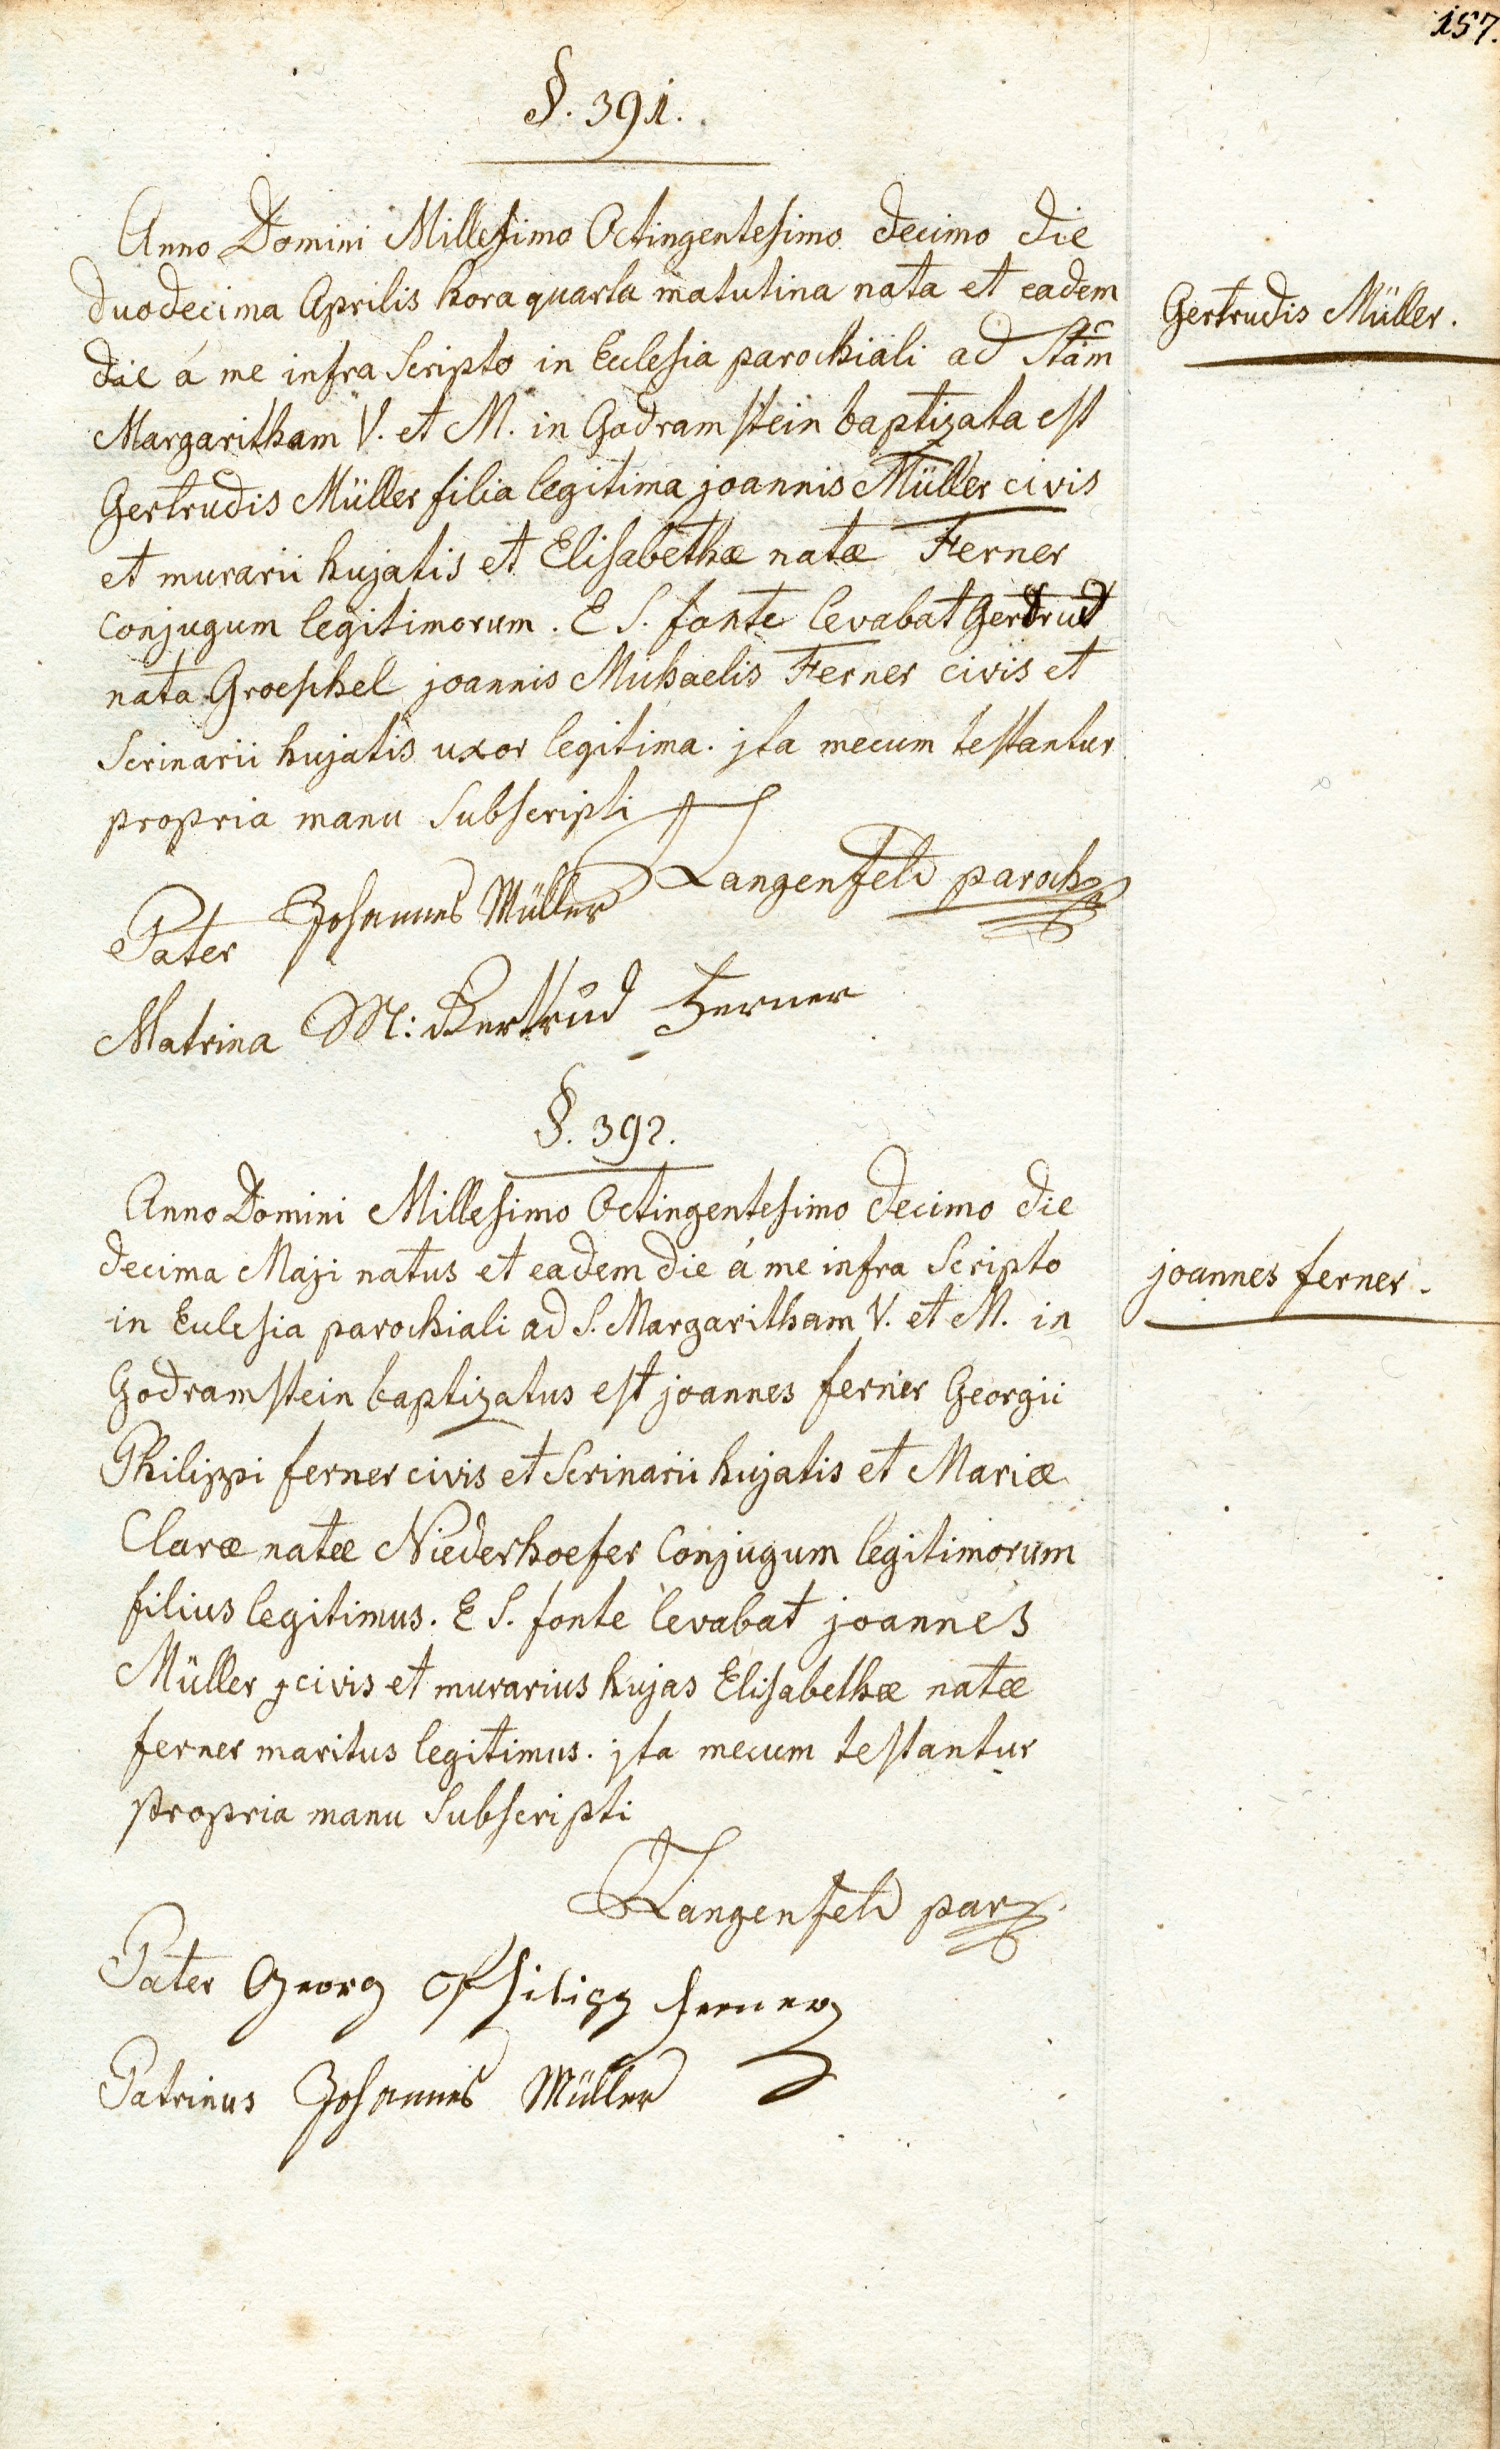 157.
§. 391.
Anno Domini Millesimo Octingentesimo decimo die
duodecima Aprilis hora quarta matutina nata et eadem
die á me infra Scripto in Ecclesia parochiali ad Stam
Margaritham V. et M. in Godramstein baptizata est
Gertrudis Müller filia legitima joannis Müller civis
et murarii hujatis et Elisabethæ natæ Ferner
conjugum legitimorum. E S. fonte levabat Gertrud
nata Groephel joannis Michaelis Ferner civis et
Scrinarii hujatis uxor legitima. jta mecum testantur
propria manu Subscripti
Langenfeld paroch
Pater Johannes Müller
Matrina M: Gertrud Ferner
Gertrudis Müller.
§. 392.
Anno Domini Millesimo Octingentesimo decimo die
decima Maji natus et eadem die á me infra Scripto
in Ecclesia parochiali ad S. Margaritham V. et M. in
Godramstein baptizatus est joannes ferner Georgii
Philippi ferner civis et Scrinarii hujatis et Mariæ
Claræ natæ Niederhoefer Conjugum legitimorum
filius legitimus. E S. fonte levabat joannes
Müller civis et murarius hujas Elisabethæ natæ
ferner maritus legitimus. jta mecum testantur
propria manu Subscripti
Langenfeld par
Pater Georg Philipp ferner
Patrinus Johannes Müller
joannes ferner.